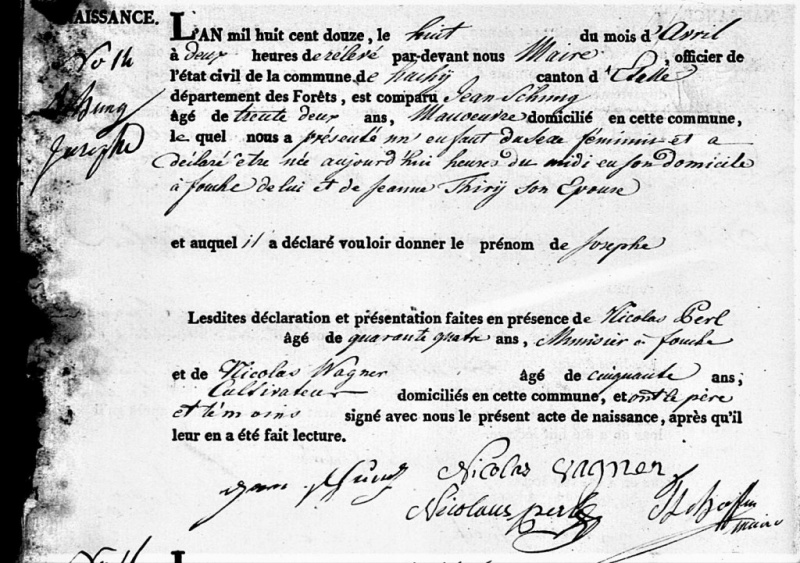 NAISSANCE.
L'AN mil huit cent douze, le huit du mois d'Avril
No 14
à deux heures de rélevé par-devant nous Maire, officier de
l'état civil de la commune de hachÿ canton d'
département des Forêts, est comparu Jean Schung
Schung
âgé de trente deux ans, Manoeuvre domicilié en cette commune,
Josephe
le quel nous a présenté un enfant du sexe féminin et a
déclaré être née aujourd'hui heures du midi en son domicile
à fouche de lui et de Jeanne Thirÿ son Epouse
et auquel il a déclaré vouloir donner le prénom de Josephe
Lesdites déclaration et présentation faites en présence de Nicolas Perl
âgé de quarante quatre ans, Menusier à fouche
et de Nicolas Wagner âgé de cinquante ans;
Cultivateur domiciliés en cette commune, et ont le père
et témoins signé avec nous le présent acte de naissance, après qu'il
leur en a été fait lecture.
Nicolas Wagner
Nicolaus perl
maire
No